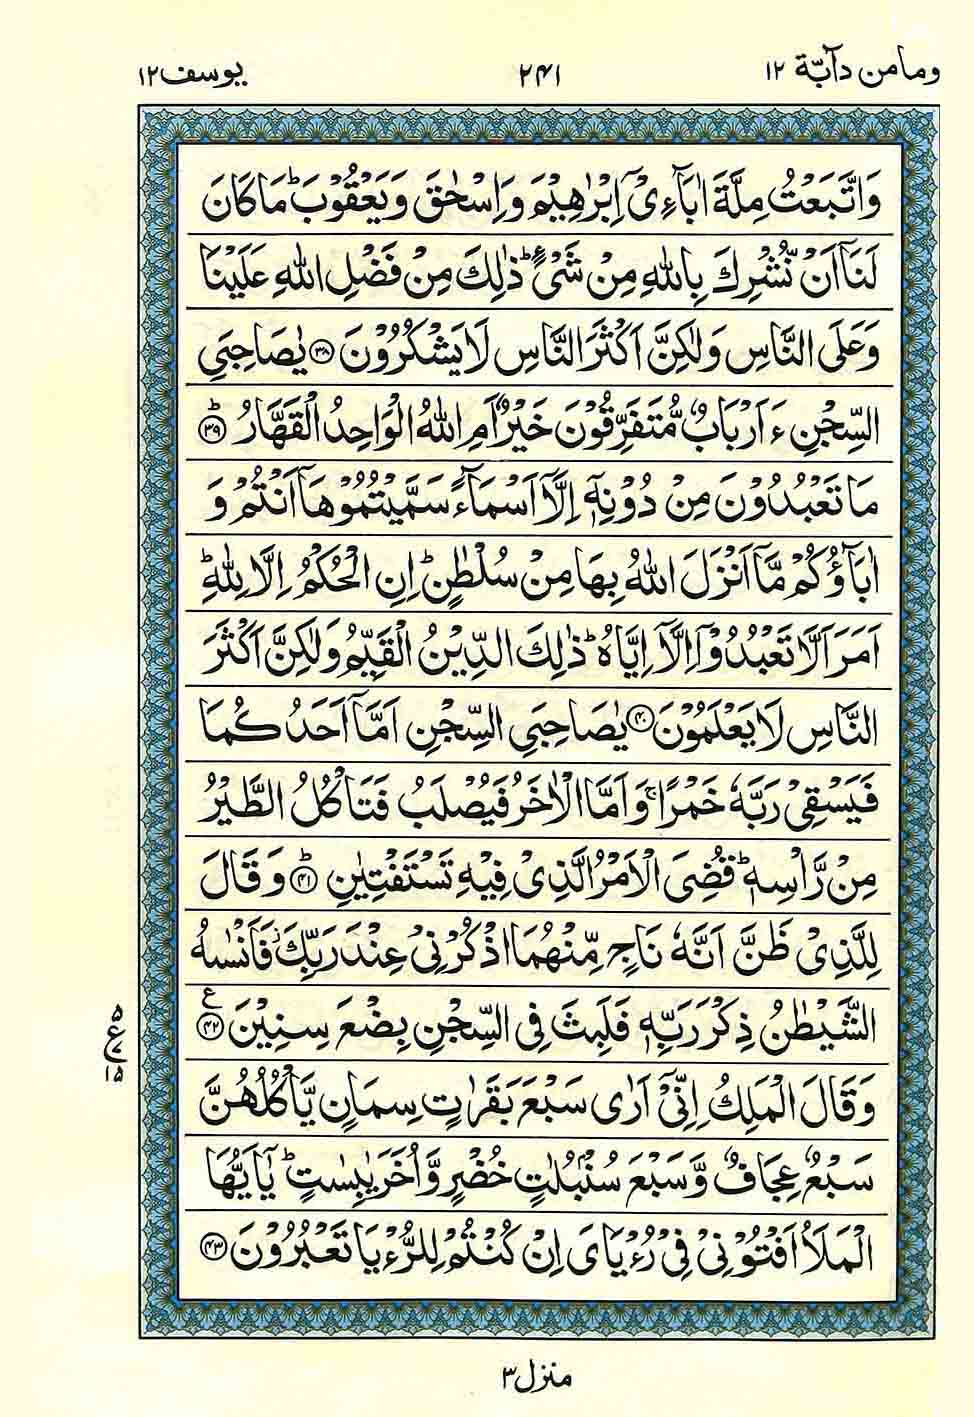 وما من دآبة ١٢
٢٤١
يوسف ١٢
وَاتَّبَعْتُ مِلَّةَ اٰبَآءِیْۤ اِبْرٰهِیْمَ وَاِسْحٰقَ وَیَعْقُوْبَ ؕ مَا كَانَ
لَنَاۤ اَنْ نُّشْرِكَ بِاللّٰهِ مِنْ شَیْءٍ ؕ ذٰلِكَ مِنْ فَضْلِ اللّٰهِ عَلَیْنَا
وَعَلَی النَّاسِ وَلٰكِنَّ اَكْثَرَ النَّاسِ لَا یَشْكُرُوْنَ ﴿۳۸﴾ یٰصَاحِبَیِ
السِّجْنِ ءَاَرْبَابٌ مُّتَفَرِّقُوْنَ خَیْرٌ اَمِ اللّٰهُ الْوَاحِدُ الْقَهَّارُ ﴿۳۹﴾ؕ
مَا تَعْبُدُوْنَ مِنْ دُوْنِهٖۤ اِلَّاۤ اَسْمَآءً سَمَّیْتُمُوْهَاۤ اَنْتُمْ وَ
اٰبَآؤُكُمْ مَّاۤ اَنْزَلَ اللّٰهُ بِهَا مِنْ سُلْطٰنٍ ؕ اِنِ الْحُكْمُ اِلَّا لِلّٰهِ ؕ
اَمَرَ اَلَّا تَعْبُدُوْۤا اِلَّاۤ اِیَّاهُ ؕ ذٰلِكَ الدِّیْنُ الْقَیِّمُ وَلٰكِنَّ اَكْثَرَ
النَّاسِ لَا یَعْلَمُوْنَ ﴿۴۰﴾ یٰصَاحِبَیِ السِّجْنِ اَمَّاۤ اَحَدُكُمَا
فَیَسْقِیْ رَبَّهٗ خَمْرًا ۚ وَاَمَّا الْاٰخَرُ فَیُصْلَبُ فَتَاْكُلُ الطَّیْرُ
مِنْ رَّاْسِهٖ ؕ قُضِیَ الْاَمْرُ الَّذِیْ فِیْهِ تَسْتَفْتِیٰنِ ﴿۴۱﴾ؕ وَقَالَ
لِلَّذِیْ ظَنَّ اَنَّهٗ نَاجٍ مِّنْهُمَا اذْكُرْنِیْ عِنْدَ رَبِّكَ ؗ فَاَنْسٰىهُ
الشَّیْطٰنُ ذِكْرَ رَبِّهٖ فَلَبِثَ فِی السِّجْنِ بِضْعَ سِنِیْنَ ﴿۴۲﴾ع
۵ ع ۷ ۱۵
وَقَالَ الْمَلِكُ اِنِّیْۤ اَرٰی سَبْعَ بَقَرٰتٍ سِمَانٍ یَّاْكُلُهُنَّ
سَبْعٌ عِجَافٌ وَّسَبْعَ سُنْۢبُلٰتٍ خُضْرٍ وَّاُخَرَ یٰبِسٰتٍ ؕ یٰۤاَیُّهَا
الْمَلَاُ اَفْتُوْنِیْ فِیْ رُءْیَایَ اِنْ كُنْتُمْ لِلرُّءْیَا تَعْبُرُوْنَ ﴿۴۳﴾
منزل ٣